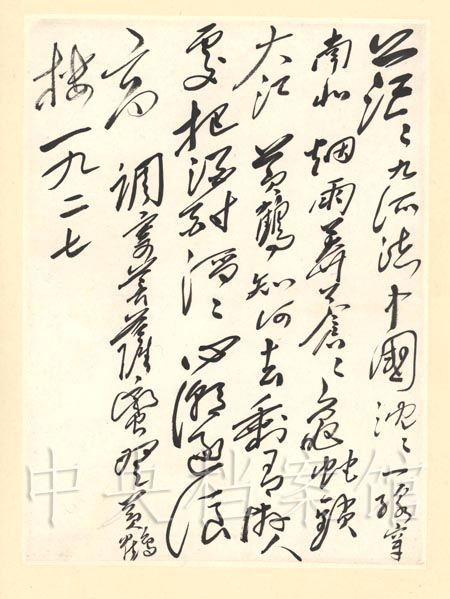 茫々九派流中國沈々一線穿
南北 烟雨莽蒼々龜蛇鎖
大江 黃鶴知何去剩有遊人
處把酒酹滔々心潮逐浪
高 調寄菩薩蠻登黃鶴
樓 一九二七
中央档案馆